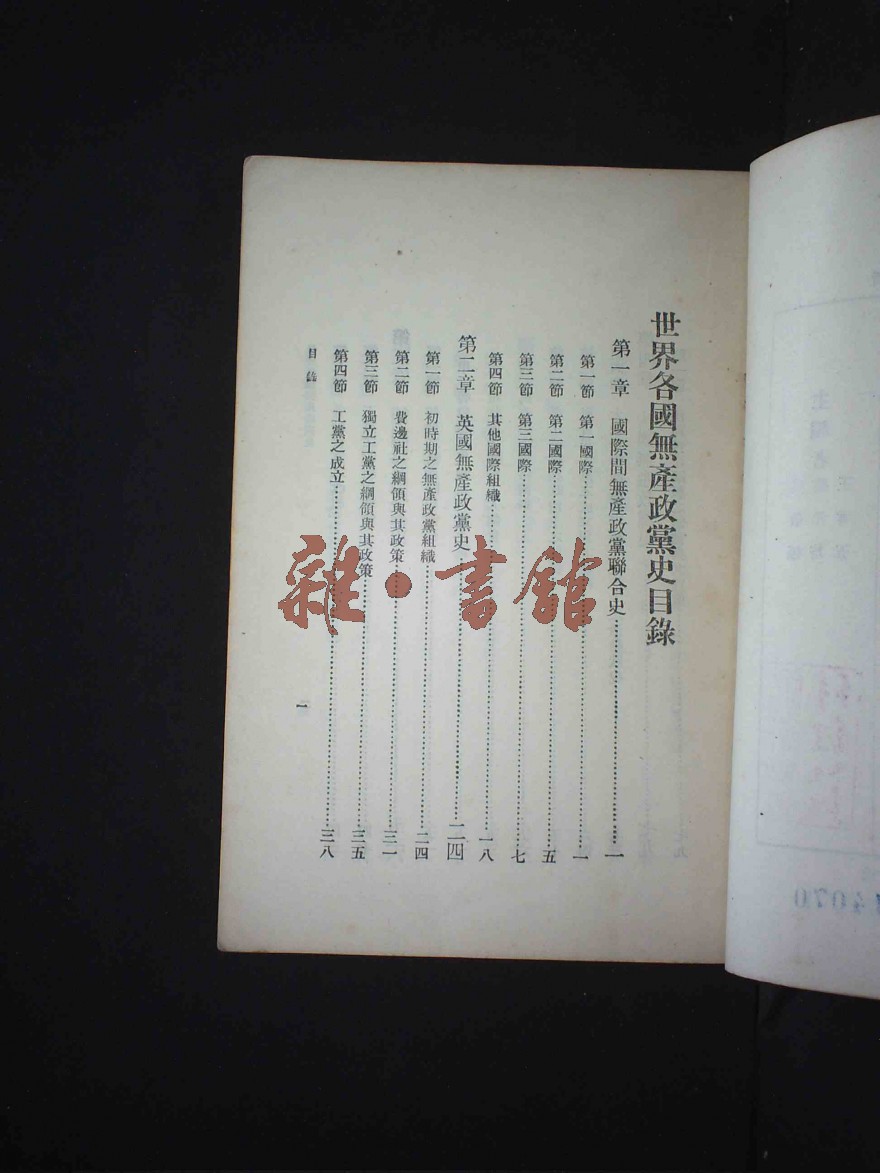 世界各國無產政黨史目錄
第一章　國際間無產政黨聯合史…………一
第一節　第一國際…………一
第二節　第二國際…………五
第三節　第三國際…………七
第四節　其他國際組織…………一八
第二章　英國無產政黨史…………二四
第一節　初時期之無產政黨組織…………二四
第二節　費邊社之綱領與其政策…………三一
第三節　獨立工黨之綱領與其政策…………三五
第四節　工黨之成立…………三八
目錄
一
雜·書館